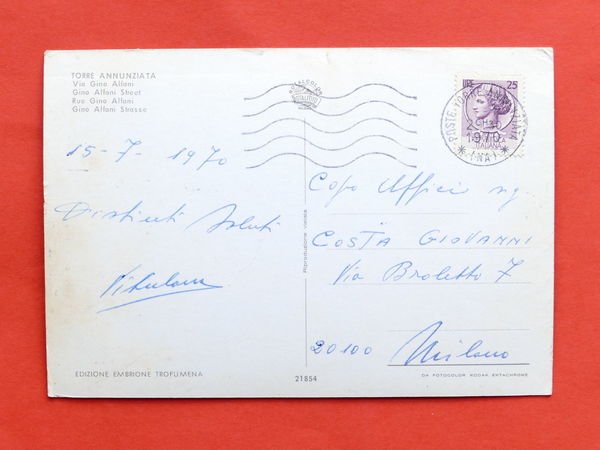 TORRE ANNUNZIATA
Via Gino Alfani
Gino Alfani Street
Rue Gino Alfani
Gino Alfani Strasse
LIRE 25
ITALIANA
POSTE TORRE ANNUNZIATA
1970
* (NA) *
15-7-1970
Distinti Saluti
Capo Uffici sig.
COSTA GIOVANNI
Via Broletto 7
20100 Milano
Riproduzione vietata
EDIZIONE EMBRIONE TROFUMENA
21854
DA FOTOCOLOR KODAK EKTACHROME